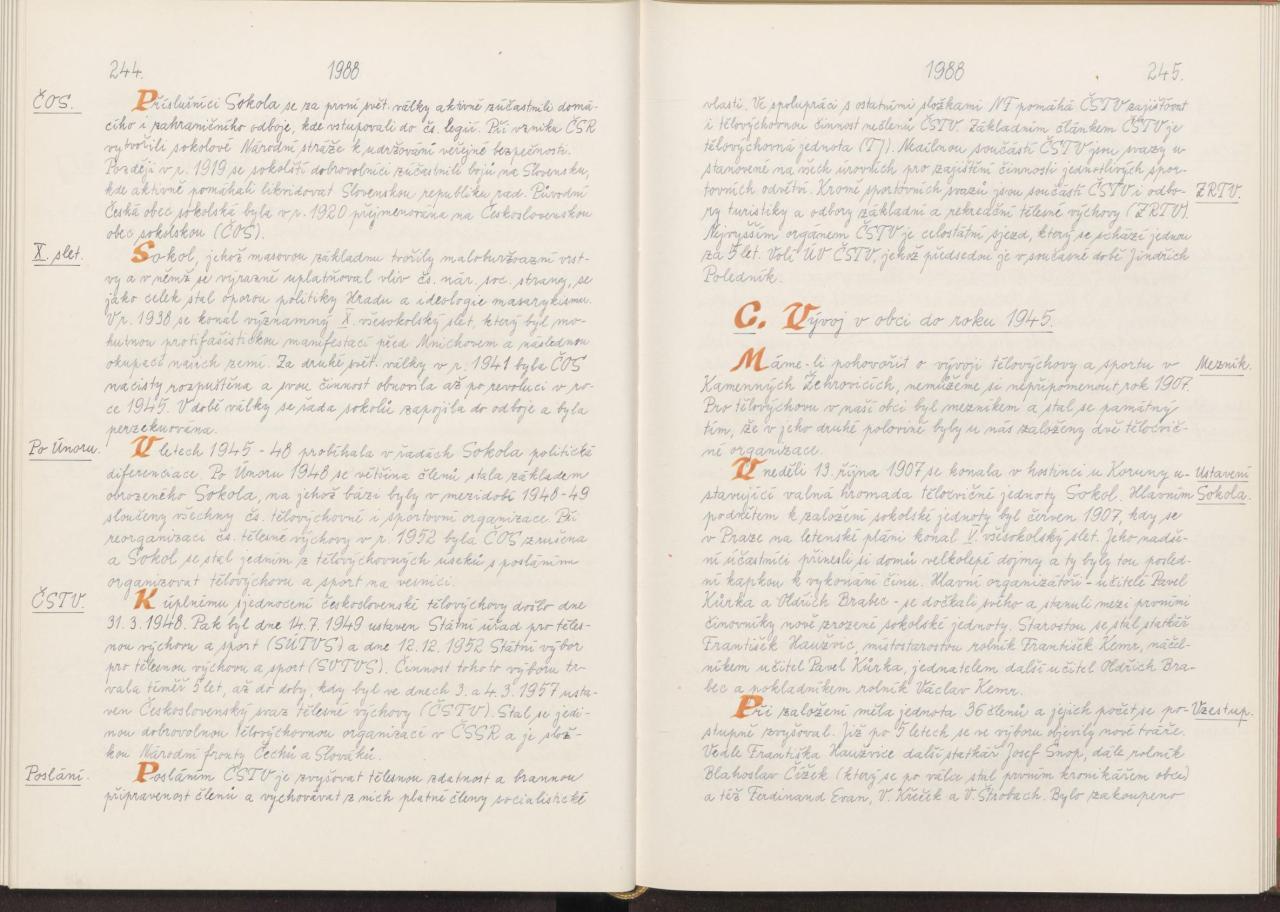 244.
1988
ČOS.
Příslušníci Sokola se za první svět. války aktivně zúčastnili domá-
cího i zahraničního odboje, kde vstupovali do čs. legií. Při vzniku ČSR
vytvořili sokolové Národní stráže k udržování veřejné bezpečnosti.
Později v r. 1919 se sokolští dobrovolníci zúčastnili bojů na Slovensku,
kde aktivně pomáhali likvidovat Slovenskou republiku rad. Původní
Česká obec sokolská byla v r. 1920 přejmenována na Československou
obec sokolskou (ČOS).
X. slet.
Sokol, jehož masovou základnu tvořily maloburžoazní vrst-
vy a v němž se výrazně uplatňoval vliv čs. nár. soc. strany, se
jako celek stal oporou politiky Hradu a ideologie masarykismu.
V r. 1938 se konal významný X. všesokolský slet, který byl mo-
hutnou protifašistickou manifestací před Mnichovem a následnou
okupací našich zemí. Za druhé svět. války v r. 1941 byla ČOS
nacisty rozpuštěna a svou činnost obnovila až po revoluci v ro-
ce 1945. V době války se řada sokolů zapojila do odboje a byla
perzekuována.
Po Únoru.
V letech 1945 - 48 probíhala v řadách Sokola politická
diferenciace. Po Únoru 1948 se většina členů stala základem
obrozeného Sokola, na jehož bázi byly v mezidobí 1948-49
sloučeny všechny čs. tělovýchovné i sportovní organizace. Při
reorganizaci čs. tělesné výchovy v r. 1952 byla ČOS zrušena
a Sokol se stal jedním z tělovýchovných úseků s posláním
organizovat tělovýchovu a sport na vesnici.
ČSTV.
K úplnému sjednocení československé tělovýchovy došlo dne
31. 3. 1948. Pak byl dne 14. 7. 1949 ustaven Státní úřad pro těles-
nou výchovu a sport (SÚTVS) a dne 12. 12. 1952 Státní výbor
pro tělesnou výchovu a sport (SVTVS). Činnost tohoto výboru tr-
vala téměř 5 let, až do doby, kdy byl ve dnech 3. a 4. 3. 1957 usta-
ven Československý svaz tělesné výchovy (ČSTV). Stal se jedi-
nou dobrovolnou tělovýchovnou organizací v ČSSR a je slož-
kou Národní fronty Čechů a Slováků.
Poslání.
Posláním ČSTV je zvyšovat tělesnou zdatnost a brannou
připravenost členů a vychovávat z nich platné členy socialistické
1988
245.
vlasti. Ve spolupráci s ostatními složkami NF pomáhá ČSTV zajišťovat
i tělovýchovnou činnost nečlenů ČSTV. Základním článkem ČSTV je
tělovýchovná jednota (TJ). Nedílnou součástí ČSTV jsou svazy u-
stanovené na všech úrovních pro zajištění činnosti jednotlivých spor-
tovních odvětví. Kromě sportovních svazů jsou součástí ČSTV i odbo-
ZRTV.
ry turistiky a odbory základní a rekreační tělesné výchovy (ZRTV).
Nejvyšším orgánem ČSTV je celostátní sjezd, který se schází jednou
za 5 let. Volí ÚV ČSTV, jehož předsední je v současné době Jindřich
Poledník.
C. Vývoj v obci do roku 1945.
Máme-li pohovořit o vývoji tělovýchovy a sportu v
Mezník.
Kamenných Žehrovicích, nemůžeme si nepřipomenout rok 1907.
Pro tělovýchovu v naší obci byl mezníkem a stal se památný
tím, že v jeho druhé polovině byly u nás založeny dvě tělocvič-
né organizace.
V neděli 13. října 1907 se konala v hostinci u Koruny u-
Ustavení
stavující valná hromada tělocvičné jednoty Sokol. Hlavním
Sokola.
podnětem k založení sokolské jednoty byl červen 1907, kdy se
v Praze na letenské pláni konal V. všesokolský slet. Jeho nadše-
ní účastníci přinesli si domů velkolepé dojmy a ty byly tou posled-
ní kapkou k vykonání činu. Hlavní organizátoři - učitelé Pavel
Kůrka a Oldřich Brabec - se dočkali svého a stanuli mezi prvními
činovníky nově zrozené sokolské jednoty. Starostou se stal statkář
František Haužvic, místostarostou rolník František Kemr, náčel-
níkem učitel Pavel Kůrka, jednatelem další učitel Oldřich Bra-
bec a pokladníkem rolník Václav Kemr.
Při založení měla jednota 36 členů a jejich počet se po-
Vzestup.
stupně zvyšoval. Již po 5 letech se ve výboru objevily nové tváře.
Vedle Františka Haužvice další statkář Josef Šnop, dále rolník
Blahoslav Čížek (který se po válce stal prvním kronikářem obce)
a též Ferdinand Evan, V. Křeček a V. Štrobach. Bylo zakoupeno